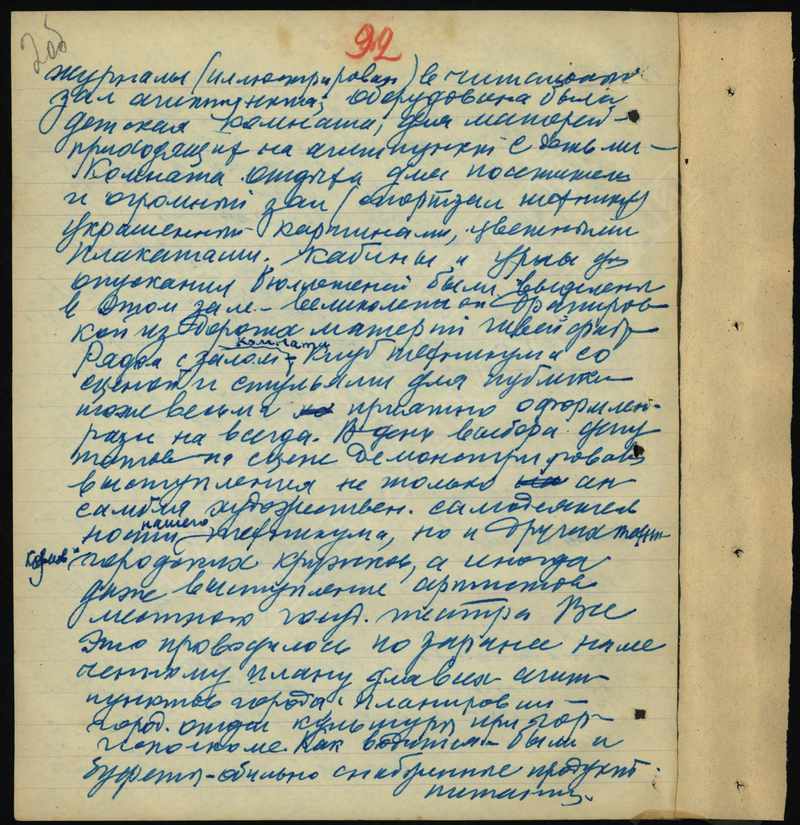 92
журналы (иллюстрирован) в читальном
зал агитпункта; оборудована была
детская комната, для матерей
приходящих на агитпункт с детьми —
Комната отдыха для посетителей
и огромный зал (спортзал техникума)
украшенный картинами, цветными
плакатами. Кабины и урны для
опускания бюллетеней были выделены
в этом зале — великолепной драпиров
кой из дорогих материй
Рядом с залом — комната клуб техникума со
сценой и стульями для публики
тоже весьма приятно оформлен-
раз на всегда. В день выбора депу
татов на сцене демонстрировали
выступления не только ан
самбля художествен. самодеятель
ности нашего техникума, но и других
городских кружков, а иногда
даже выступление артистов
местного госуд. театра Все
это проводилось по заранее наме
ченному плану для всех агит-
пунктов города. Планировал —
город. отдел культуры при гор-
исполкоме. Как водится — были и
буфеты — обильно снабженные продукт.
питания.